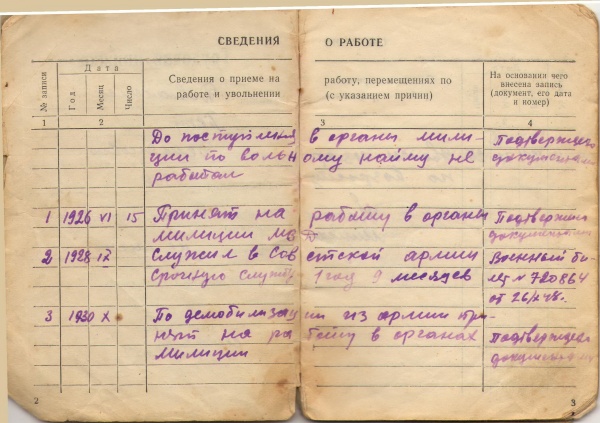 СВЕДЕНИЯ О РАБОТЕ
№ записи
Дата
Год
Месяц
Число
Сведения о приеме на работу, перемещениях по
работе и увольнении (с указанием причин)
На основании чего
внесена запись
(документ, его дата
и номер)
1 2 3 4
До поступления в органы мили-
ции по вольному найму не
работал
Подтверждено
документами
1 1926 VI 15 Принят на работу в органы
милиции
Подтверждено
документами
2 1928 IX Служил в Советской армии
срочную службу 1 год 9 месяцев
Военный би-
лет № 720864
от
3 1930 X По демобилизации из армии при-
нят на работу в органах
милиции
Подтверждено
документами
2 3